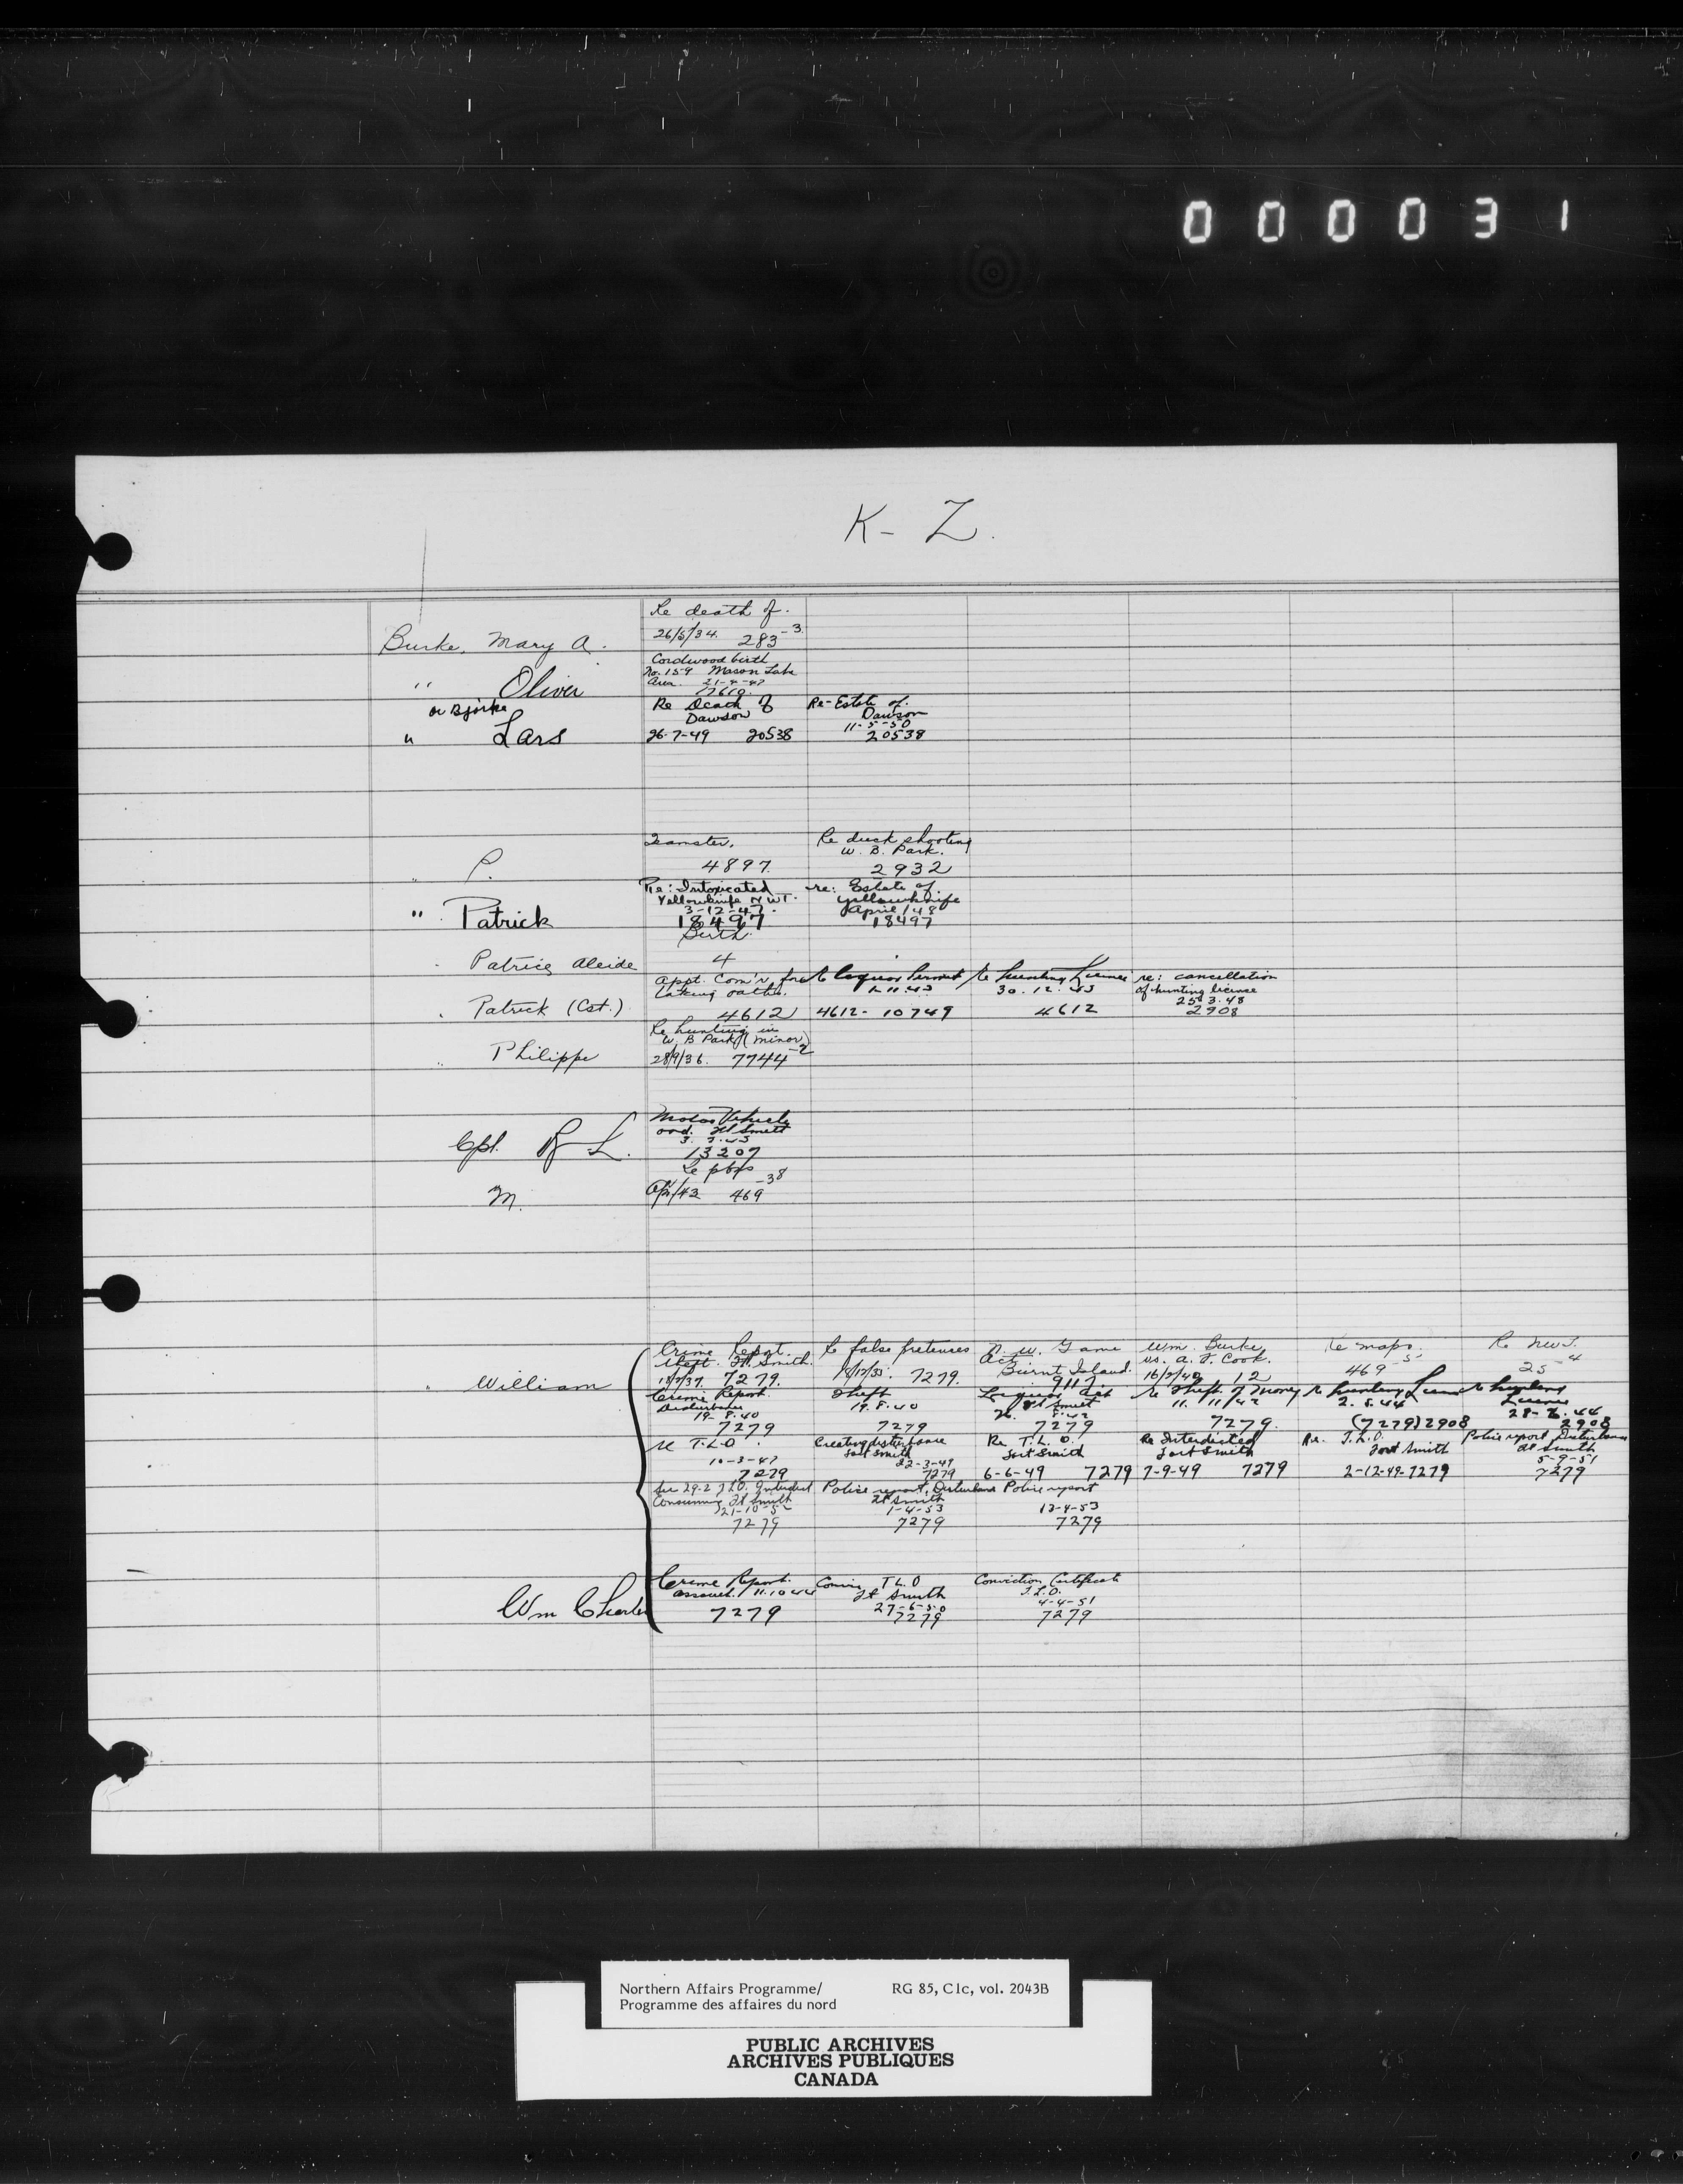 000031
K - Z.
Burke, Mary A.
Re death of.
26/5/34. 283-3
" Oliver
Cordwood birth
No. 159 Mason Lake
Area. 21-4-47
17610.
or Bjorke
" Lars
Re Death of
Dawson
26-7-49 20538
Re-Estate of.
Dawson
11-5-50
20538
" P.
Teamster.
4897.
Re duck shooting
W. B. Park.
2932
" Patrick
Re: Intoxicated
Yellowknife NWT.
3-12-47.
18497
re: Estate of
Yellowknife
April/48
18497
Patrick Alcide
Birth.
4
" Patrick (Cst.)
Appt. Com'r for
taking oaths.
4612
Re liquor Permit
1-11.43
4612- 10749
Re hunting License
30.12.43
4612
re: cancellation
of hunting license
25.3.48
2908
" Philippe
Re hunting in
W. B Park (minor)
28/9/36. 7744-2
Cpl. R L.
Motor Vehicle
ord. Ft Smith
3.7.45
13207
M.
Re pbps
Apr/43 469-38
" William
Crime Report.
theft. Ft. Smith.
18/7/37. 7279.
Re false pretenses
18/12/35. 7279.
N. W. Game
Act
Burnt Island.
9117.
Wm. Burke
vs. A. F. Cook.
16/2/40 12
Re maps.
469-5
Re N.W.T.
25-4
Crime Report.
Disturbance
19-8.40
7279
Theft
19.8.40
7279
Liquor Act
Ft Smith
26. 8.42
7279
Re Theft of Money
11. 11/42
7279.
Re hunting License
2.5.44
(7279) 2908
Re hunting
License
28-7.44
2908
Re T.L.O.
10-3-47
7279
Creating disturbance
Fort Smith
22-3-49
7279
Re T.L.O.
Fort Smith
6-6-49 7279
Re Interdicted
Fort Smith
7-9-49 7279
Re. T.L.O.
Fort Smith
2-12-49-7279
Police report Disturbance
Ft Smith
5-9-51
7279
Sec 29-2 T.L.O. Interdict
Consuming Ft Smith
21-10-52
7279
Police report, Disturbance
Ft Smith
1-4-53
7279
Police report
13-4-53
7279
Wm Charles
Crime Report.
assault. 11.10.44
7279
T L.O
Ft Smith
27-6-50
7279
Conviction Certificate
T.L.O.
4-4-51
7279
Northern Affairs Programme/ RG 85, C1c, vol. 2043B
Programme des affaires du nord
PUBLIC ARCHIVES
ARCHIVES PUBLIQUES
CANADA